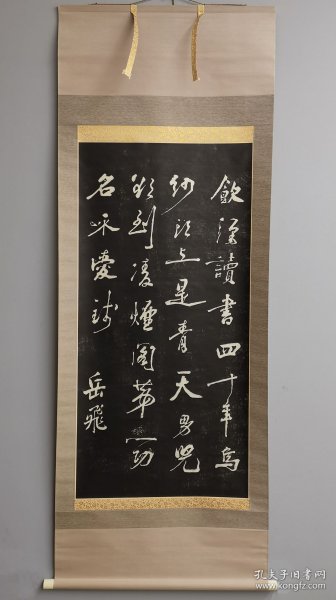 飲酒讀書四十年烏
紗頭上是青天男兒
欲到凌煙閣第一功
名不愛錢
岳飛
孔夫子旧书网
www.kongfz.com